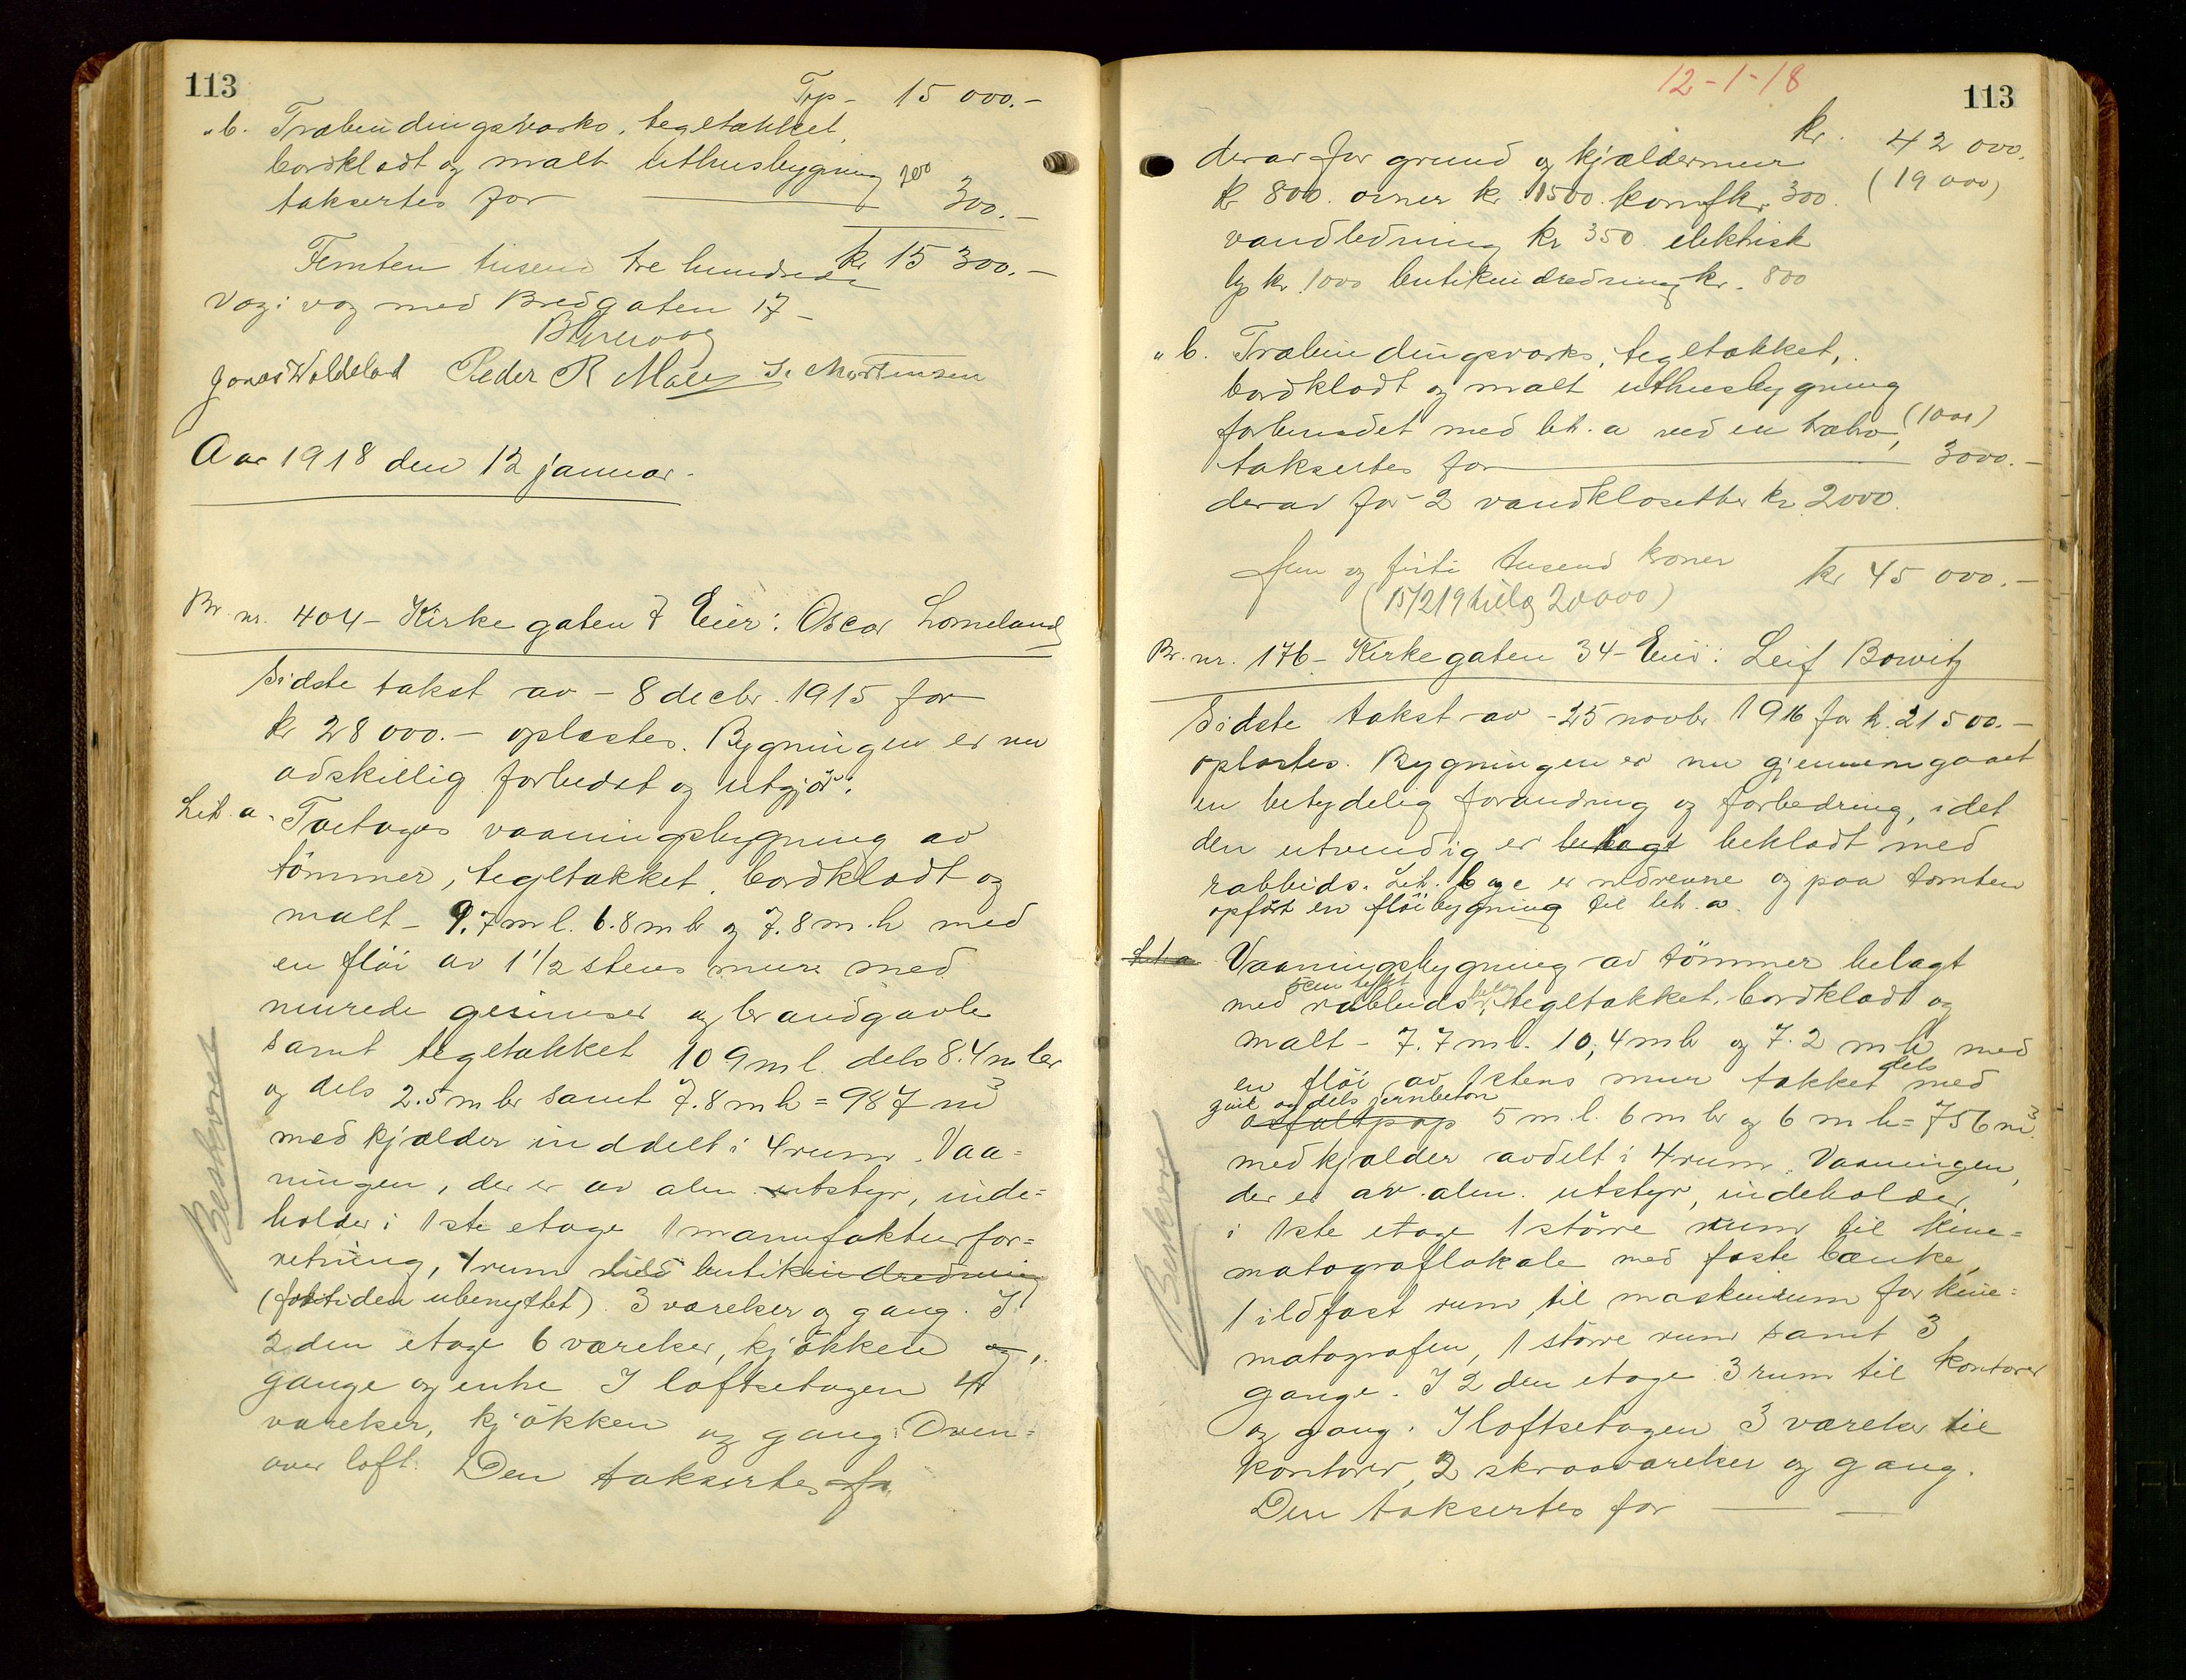 113
Trp - 15 000.-
" b. Træbindingsverks, tegltækket,
bordklædt og malt uthusbygning 200
takseres for 300.-
Femten tusend tre hundrede kr 15 300.-
Væg i væg med Bredgaten 17 -
Jonas Waldeland Peder R. S. Mortensen
Aar 1918 den 12 januar.
Br. nr. 404 - Kirkegaten 7 Eier: Oscar Lomeland
Sidste takst av - 8 decbr. 1915 for
kr 28 000.- oplæstes. Bygningen er nu
adskillig forbedret og utgjør:
Lit. a. Toetages vaaningsbygning av
tömmer, tegltækket, bordklædt og
malt - 9.7 m l. 6.8 m br og 7.8 m. h med
en flöi av 1 1/2 stens mur med
murede gesimser og brandgavle
samt tegltækket 10 9 m l. dels 8.4 m br
og dels 2.5 m br samt 7.8 m h = 987 m3
med kjælder inddelt i 4 rum. Vaa=
ningen, der er av alm. utstyr, inde=
holder i 1ste etage 1 manufakturfor=
retning, 1 rum butikindredning
(for tiden ubenyttet). 3 værelser og gang. I
2den etage 6 værelser, kjökken og,
gange og entre I loftsetagen 4
værelser, kjökken og gang. Oven=
over loft. Den takseres for
Beskrevet
12-1-18
113
kr. 42 000.
derav for grund og kjældermur (19 000)
kr 800. ovner kr. 1500. komf kr. 300.
vandledning kr 350. elektrisk
lys kr. 1000 butikindredning kr. 800
" b. Træbindingsverks, tegltækket,
bordklædt og malt uthusbygning
forbundet med lit. a ved en træbro, (1000)
takseres for 3000.-
derav for 2 vandklosetter kr. 2000.
Fem og firti tusend kroner kr 45 000.-
(15/2 19 tillæg 20000)
Br. nr. 176 - Kirkegaten 34 - Eier: Leif Bowitz
Sidste takst av - 25 novbr 1916 for kr. 21500.-
oplæstes. Bygningen er nu gjennemgaaet
en betydelig forandring og forbedring, idet
den utvendig er belagt beklædt med
rabbids. Lit. b og c er nedrevne og paa tomten
opført en flöibygning til lit. a.
Lit a Vaaningsbygning av tömmer belagt
med 5cm tykt rabbids belæg, tegltækket, bordklædt og
malt - 7.7 m l. 10,4 m br og 7.2 m h med
en flöi av 1 stens mur tækket dels med
zink og dels jernbeton
asfaltpap 5 m. l. 6 m br og 6 m h = 756 m3.
med kjælder avdelt i 4 rum. Vaaningen,
der er av alm. utstyr, indeholder
i 1ste etage 1 större rum til kine=
matograflokale med faste bænke,
1 ildfast rum til maskinrum for kine=
matografen, 1 större rum samt 3
gange. I 2den etage 3 rum til kontorer
og gang. I loftsetagen 3 værelser til
kontorer, 2 skraaværelser og gang.
Den takseres for
Beskrevet